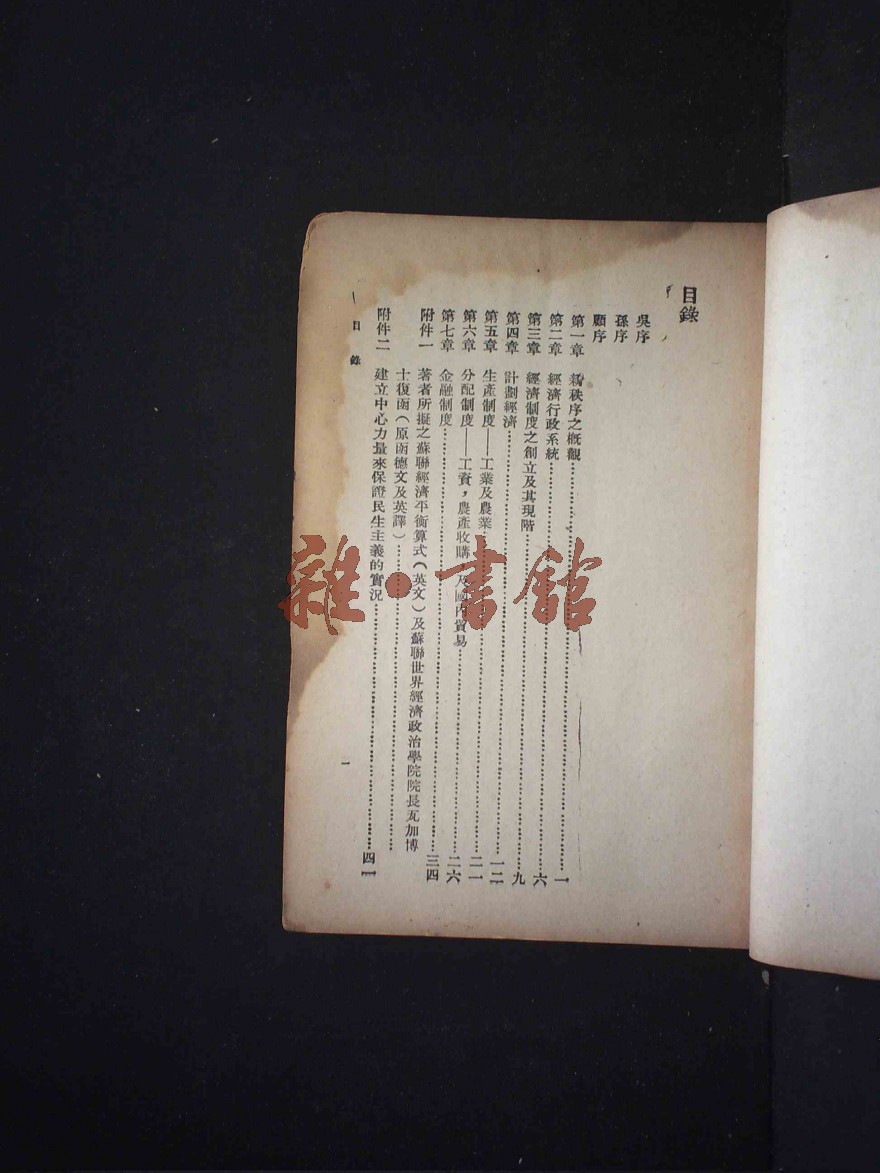 目錄
吳序
孫序
顧序
第一章 新秩序之概觀……一
第二章 經濟行政系統……六
第三章 經濟制度之創立及其現階……九
第四章 計劃經濟……一二
第五章 生產制度——工業及農業……二一
第六章 分配制度——工資，農產收購 及國內貿易……二六
第七章 金融制度……三四
附件一 著者所擬之蘇聯經濟平衡算式（英文）及蘇聯世界經濟政治學院院長瓦加博
士復函（原函德文及英譯）……
附件二 建立中心力量來保證民生主義的實況……四一
目錄
一
雜·書館